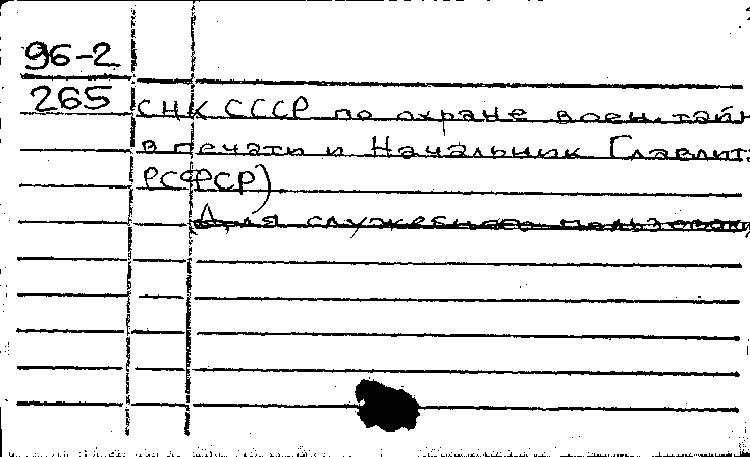 96-2
265 СНК СССР по охране воен. тайн
в печати и Начальник Главлита
РСФСР)
Для служебного пользован